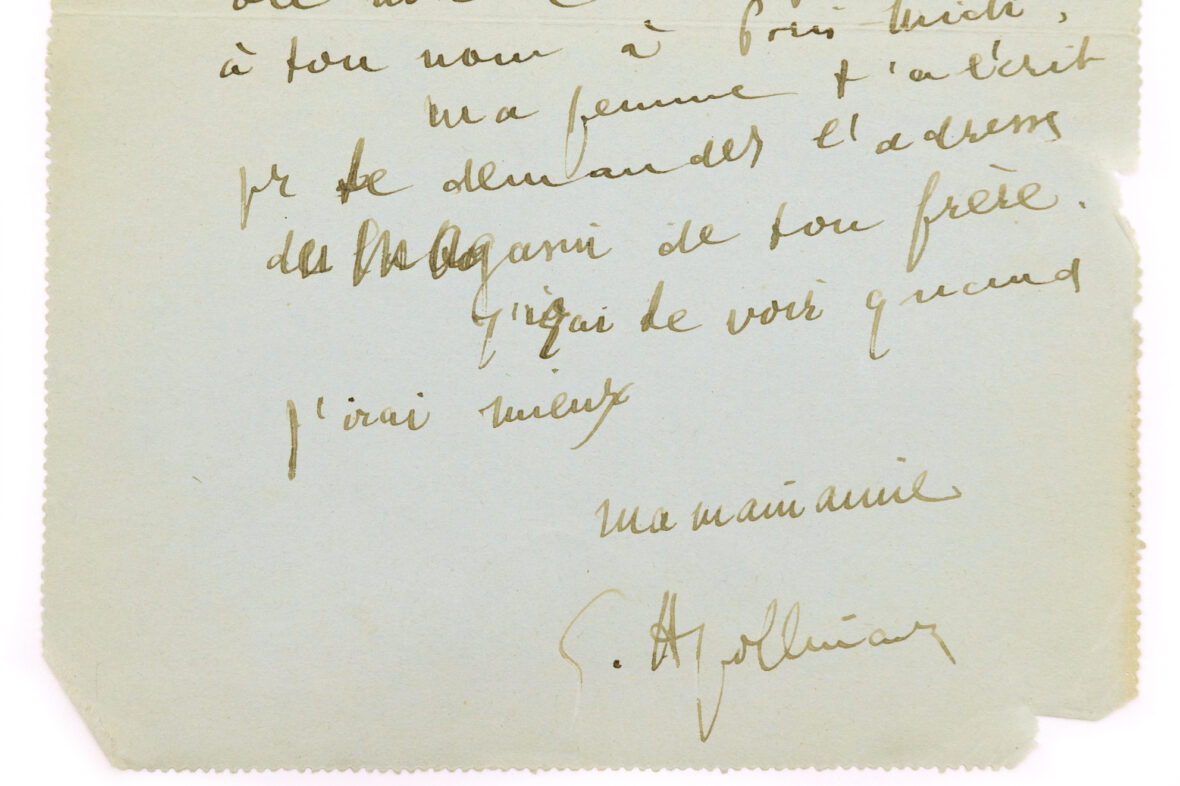 à ton nom à Paris-Midi.
ma femme t'a écrit
pr te demander l'adresse
du Magasin de ton frère.
J'irai te voir quand
j'irai mieux
ma main amie
G. Apollinaire